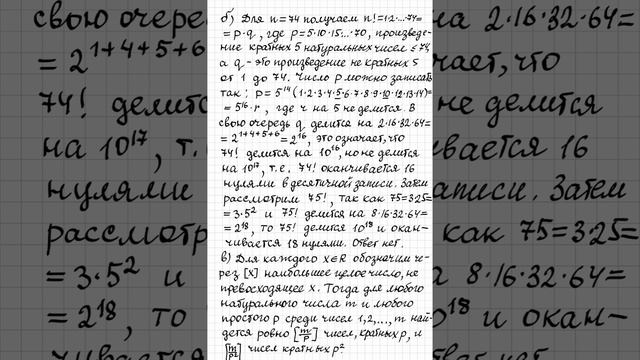 б) Для n=74 получаем n!=1·2·...·74=
= p·q, где p=5·10·15...·70, произведе-
ние кратных 5 натуральных чисел ≤ 74,
а q - это произведение не кратных 5
от 1 до 74. Число p можно записать
так: p = 5¹⁴(1·2·3·4·5·6·7·8·9·10·12·13·14)=
= 5¹⁶·r, где r на 5 не делится. В
свою очередь q делится на 2·16·32·64=
= 2¹⁺⁴⁺⁵⁺⁶ = 2¹⁶, это означает, что
74! делится на 10¹⁶, но не делится
на 10¹⁷, т.е. 74! оканчивается 16
нулями в десятичной записи. Затем
рассмотрим 75!, так как 75=3·25=
= 3·5² и 75! делится на 8·16·32·64=
= 2¹⁸, то 75! делится 10¹⁸ и окан-
чивается 18 нулями. Ответ нет.
в) Для каждого x∈R обозначим че-
рез [X] наибольшее целое число, не
превосходящее X. Тогда для любого
натурального числа m и любого
простого p среди чисел 1,2,..., m най-
дется ровно [m/p] чисел, кратных p, и
[m/p²] чисел кратных p²